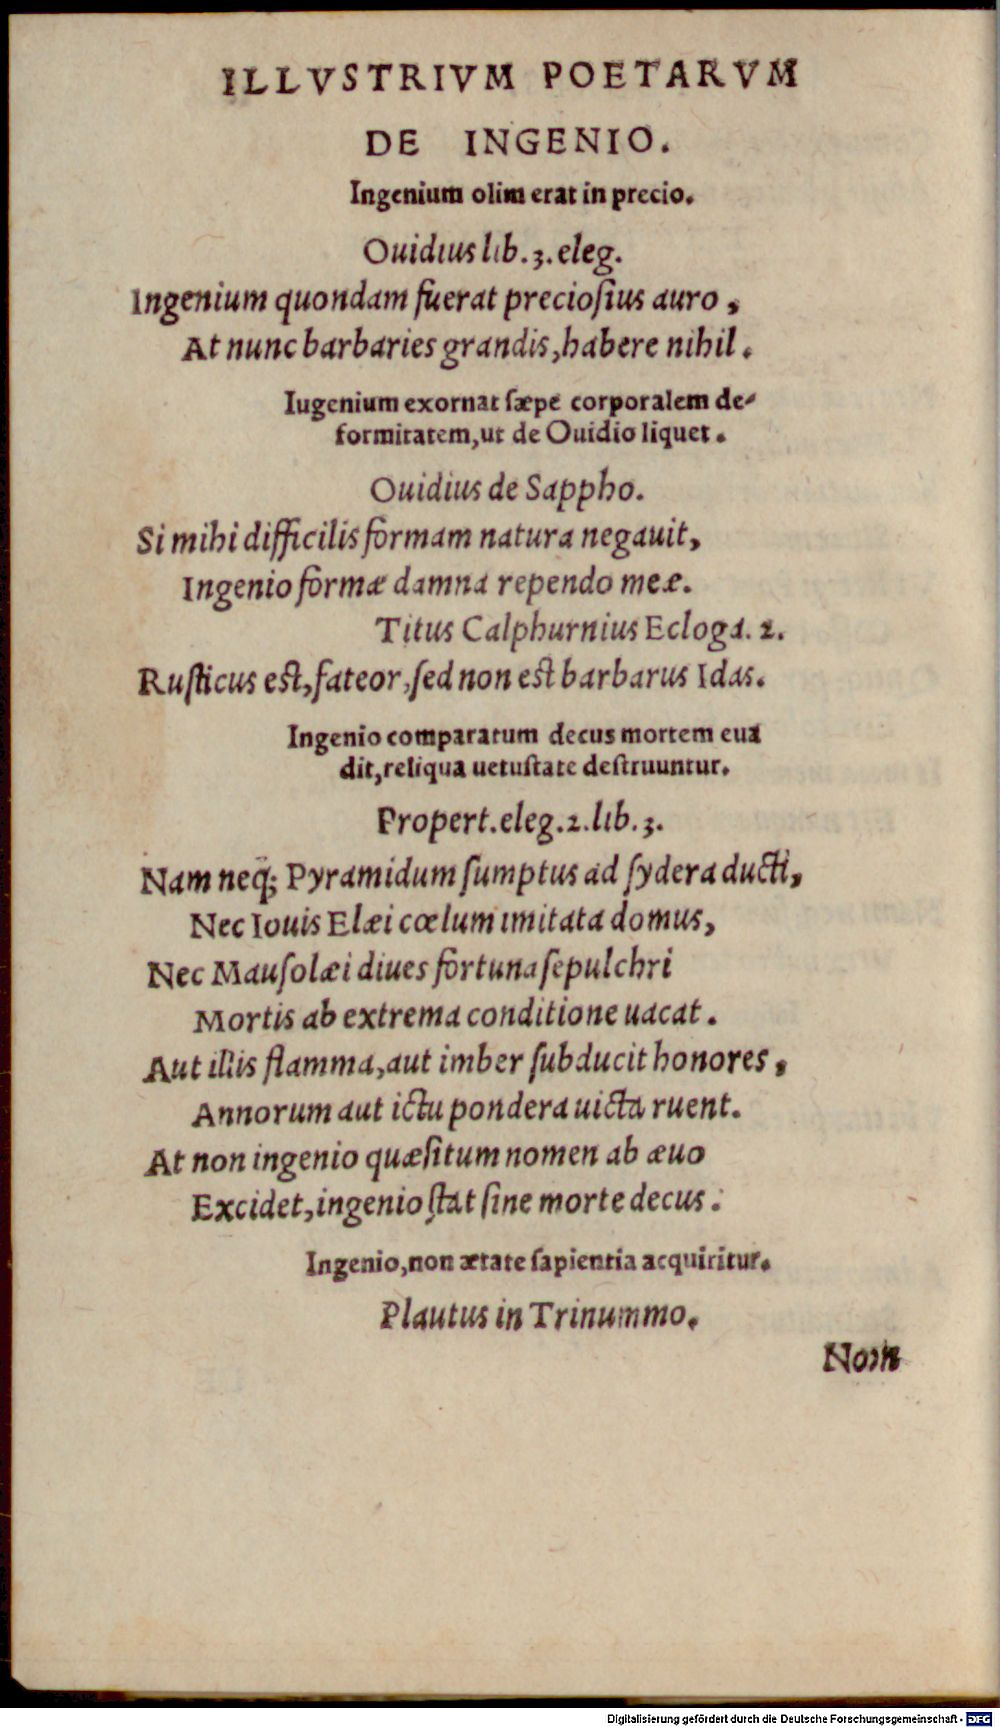 ILLVSTRIVM POETARVM
DE INGENIO.
Ingenium olim erat in precio.
Ouidius lib. 3. eleg.
Ingenium quondam fuerat preciosius auro,
At nunc barbaries grandis, habere nihil.
Iugenium exornat sæpe corporalem de-
formitatem, ut de Ouidio liquet.
Ouidius de Sappho.
Si mihi difficilis formam natura negauit,
Ingenio formæ damna rependo meæ.
Titus Calphurnius Ecloga. 2.
Rusticus est, fateor, sed non est barbarus Idas.
Ingenio comparatum decus mortem eua
dit, reliqua uetustate destruuntur.
Propert. eleg. 2. lib. 3.
Nam neq; Pyramidum sumptus ad sydera ducti,
Nec Iouis Elæi cœlum imitata domus,
Nec Mausolæi diues fortuna sepulchri
Mortis ab extrema conditione uacat.
Aut illis flamma, aut imber subducit honores,
Annorum aut ictu pondera uicta ruent.
At non ingenio quæsitum nomen ab æuo
Excidet, ingenio stat sine morte decus.
Ingenio, non ætate sapientia acquiritur.
Plautus in Trinummo.
Non
Digitalisierung gefördert durch die Deutsche Forschungsgemeinschaft - DFG